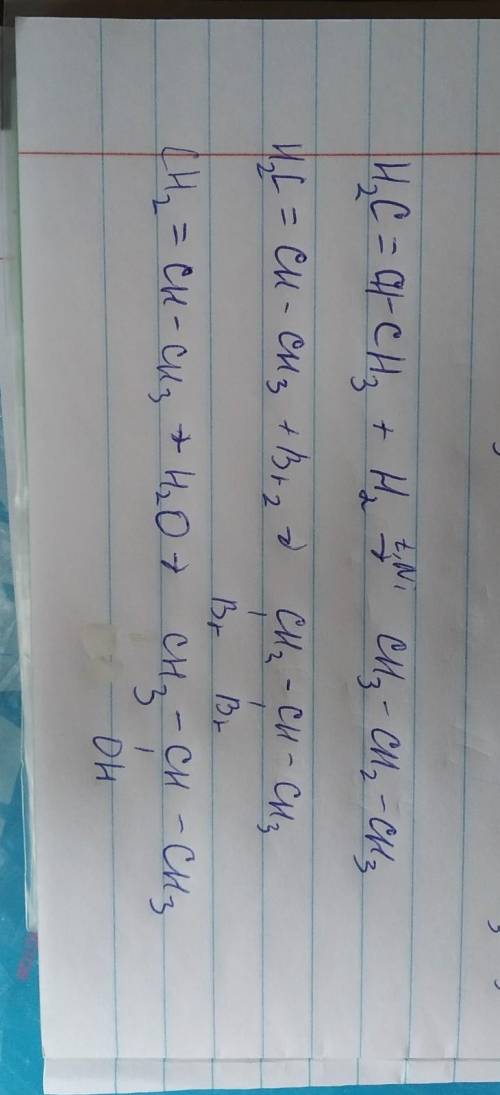 H₂C = CH - CH₃ + H₂ →(t, Ni) CH₃ - CH₂ - CH₃
H₂C = CH - CH₃ + Br₂ → CH₂ - CH - CH₃
Br Br
CH₂ = CH - CH₃ + H₂O → CH₃ - CH - CH₃
OH